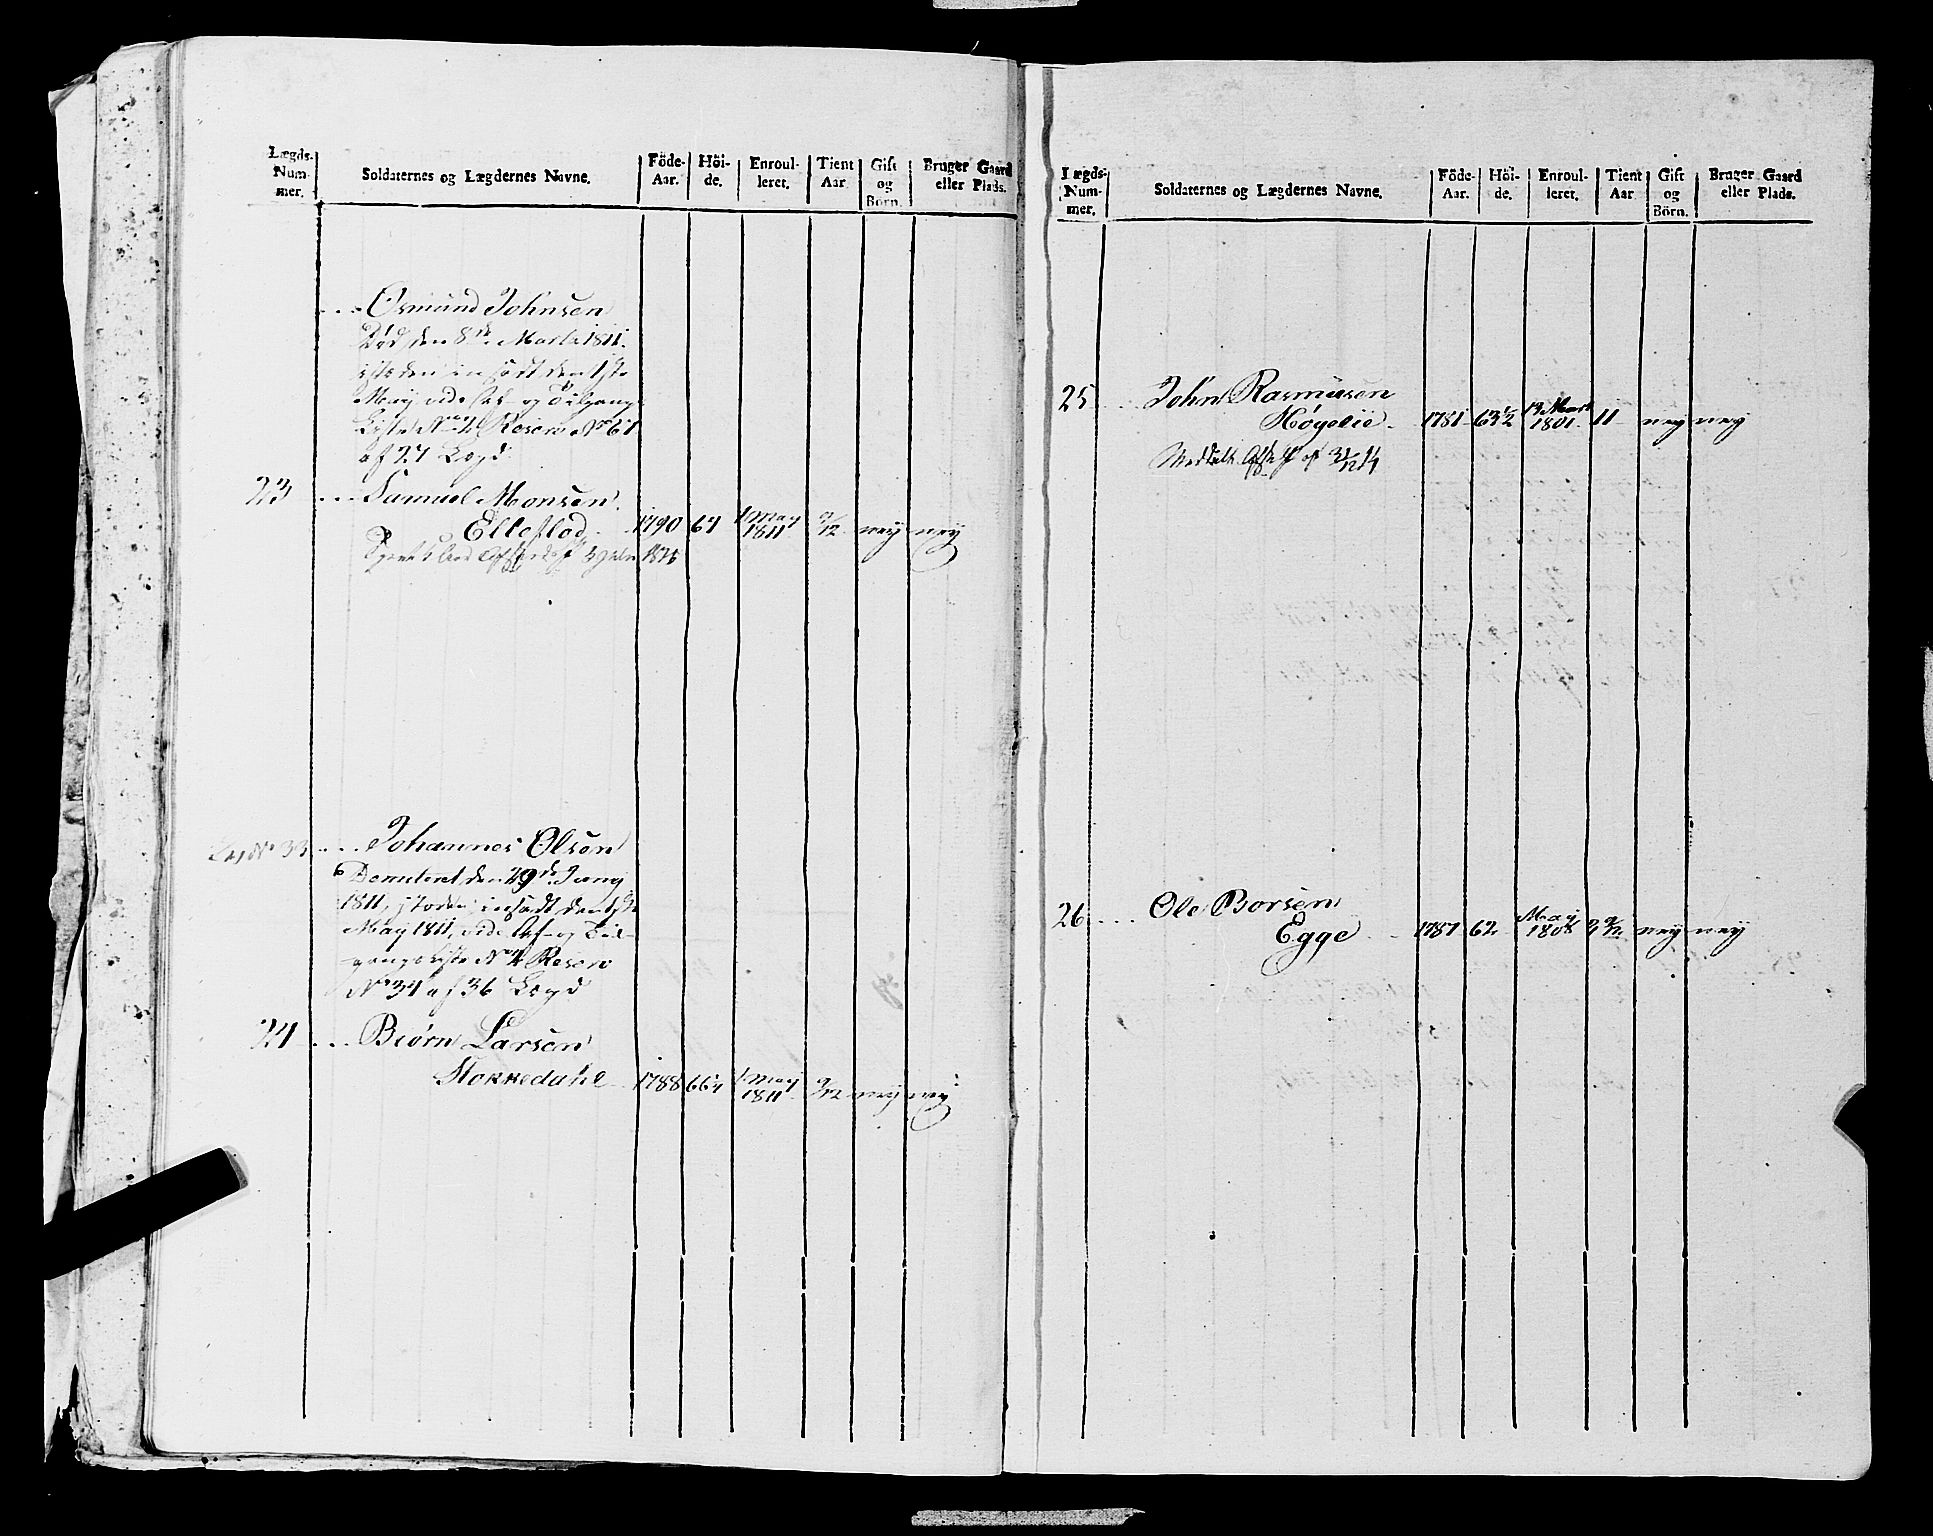 Lægds-Num-mer. Soldaternes og Lægdernes Navne. Föde-Aar. Höi-de. Enroul-leret. Tient Aar Gift og Börn. Bruger Gaard eller Plads.
Osmund Johnsen
Død den 8de Marti 1811.
istæden indsadt den 1ste
May vide Af- og Tilgangs
Liste No 4 Reserv No 67
af 27 Lægd
23 Samuel Monsen
Elleflod 1790 64 1 May 1811 9/12 ney ney
1825
No 33 Johannes Olsen
Demiteret den 29de Juny
1811, istæden indsadt den 1ste
May 1811, vide Af- og Til-
gangs Liste No 4 Reserv
No 34 af 36 Lægd
24 Biørn Larsen
Stokkedahl 1788 66 1/4 1 May 1811 9/12 ney ney
Lægds-Num-mer. Soldaternes og Lægdernes Navne. Föde-Aar. Höi-de. Enroul-leret. Tient Aar Gift og Börn. Bruger Gaard eller Plads.
25 John Rasmusen
Høyelie 1781 63 1/2 13 Mart 1801 11 ney ney
Meddelt Afsk af 31/12 14
26 Ole Borsen
Egge 1787 62 May 1808 3 9/12 ney ney